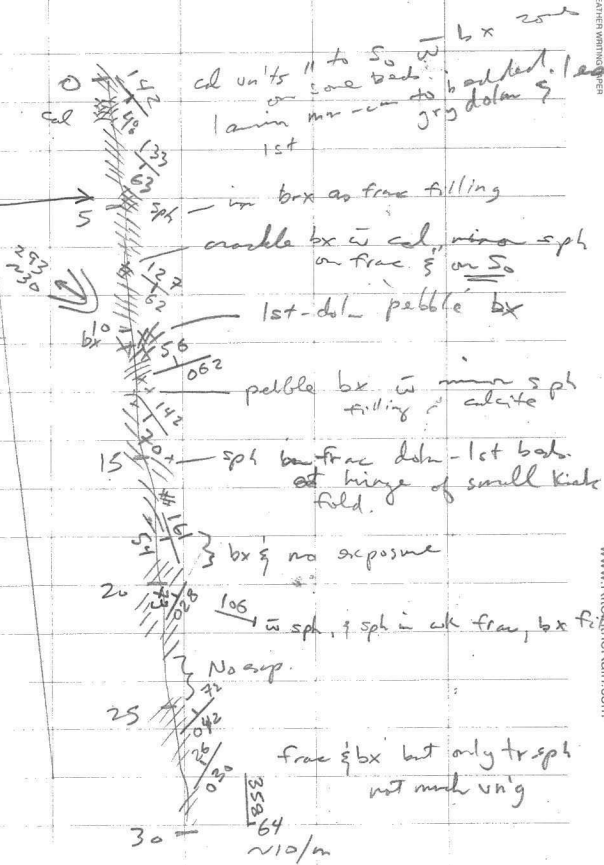 EATHER WRITING PAPER
w̄ bx zones
0 142 cal vn'ts " to S₀
cal on some beds. bedded.
46 lamin mm-cm to gry dolm &
lst
133
63
5 sph in brx as frac filling
crackle bx w̄ cal, minor sph
on frac. & on S₀
127
62
293
230
lst-dol pebble bx
10
bx 56
062
pebble bx w̄ minor sph
filling & calcite
142
70
15 sph in frac dolm-lst beds.
at hinge of small kink
fold.
#
161
54 } bx & no exposure
20 73 028 106 w̄ sph, & sph in wk frac, bx
} No exp.
72
25 042
26
030
frac & bx but only tr sph
not much vn'g
358
64
30 ~10/m